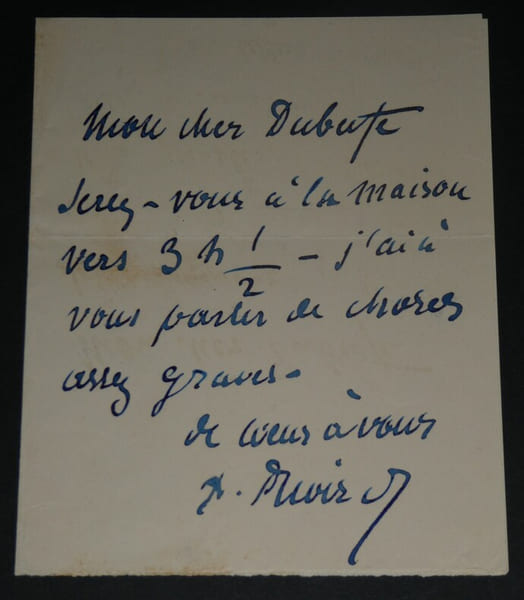 Mon cher Dubufe
Serez-vous à la maison
vers 3 h 1/2 - j'ai à
vous parler de choses
assez graves -
de coeur à vous